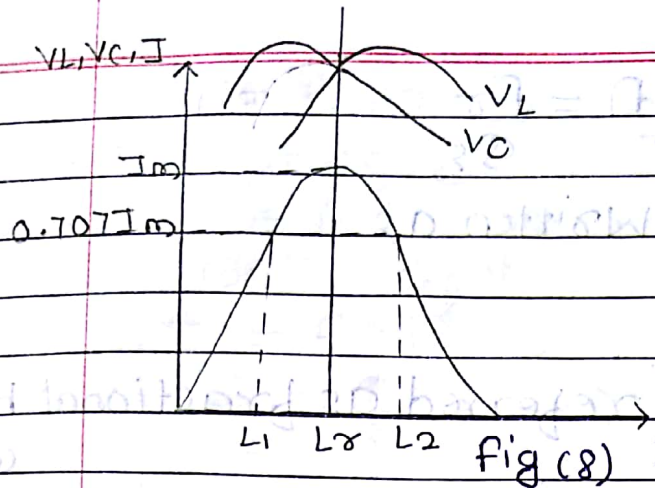 VL,VC,I
VL
VC
Im
0.707Im
L1 Lr L2
fig (8)